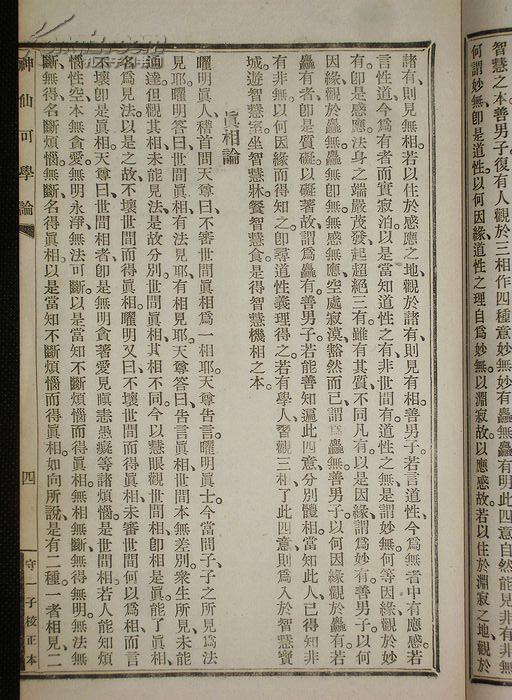 智慧之本善男子復有人觀於三相作四種意妙有麤無麤有明此四意自然能見非有非無
何謂妙無即是道性以何因緣道性之理自爲妙無以淵寂故以應感故若以住於淵寂之地觀於
諸有則見無相若以住於感應之地觀於諸有則見有相善男子若言道性今爲無者中有應感若
言性道今爲有者而實寂泊以是當知道性之有非世間有道性之無是謂妙無何等因緣觀於妙
有即是感應法身之端嚴茂發起超絕三有雖有其質不同凡有以是因緣謂爲妙有善男子以何
因緣觀於麤無麤無即無無感無應空處寂漠豁然而已謂爲麤無善男子以何因緣觀於麤有若
麤有者即是質礙以礙著故謂爲麤有善男子若能善知遍此四意分別體相當知此人已得知非
有非無以何因緣而得知之即尋道性義理得之若有學人習觀三相了此四意則爲入於智慧寶
城遊智慧室坐智慧牀餐智慧食是得智慧機相之本
眞相論
曜明眞人稽首問天尊曰不審世間眞相爲一相耶天尊告言曜明眞士今當問子子之所見爲法
見耶曜明答曰世間眞相有法見耶有相見耶天尊答曰告言眞相世間本無差別衆生所見未能
通達但觀其相未能見法是故分別世間眞相其相不同今以慧眼觀世間相即相是眞能了眞相
名爲見法以是之故不壞世間而得眞相曜明又曰不壞世間而得眞相未審世間何以爲相而言
不壞即是眞相天尊曰世間相者即是無明貪著愛見瞋恚愚癡等諸煩惱是世間相若人能知煩
惱性空本無貪愛無明永淨無法可斷以是當知不斷煩惱而得眞相無相無斷無得無明無法無
斷無得名斷煩惱無斷名得眞相以是當知不斷煩惱而得眞相如向所說是有二種一者相見二
神仙可學論
四
守一子校正本